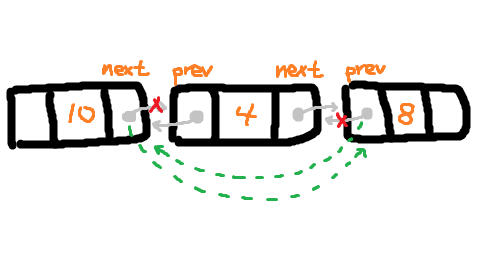 next prev next prev
10 4 8